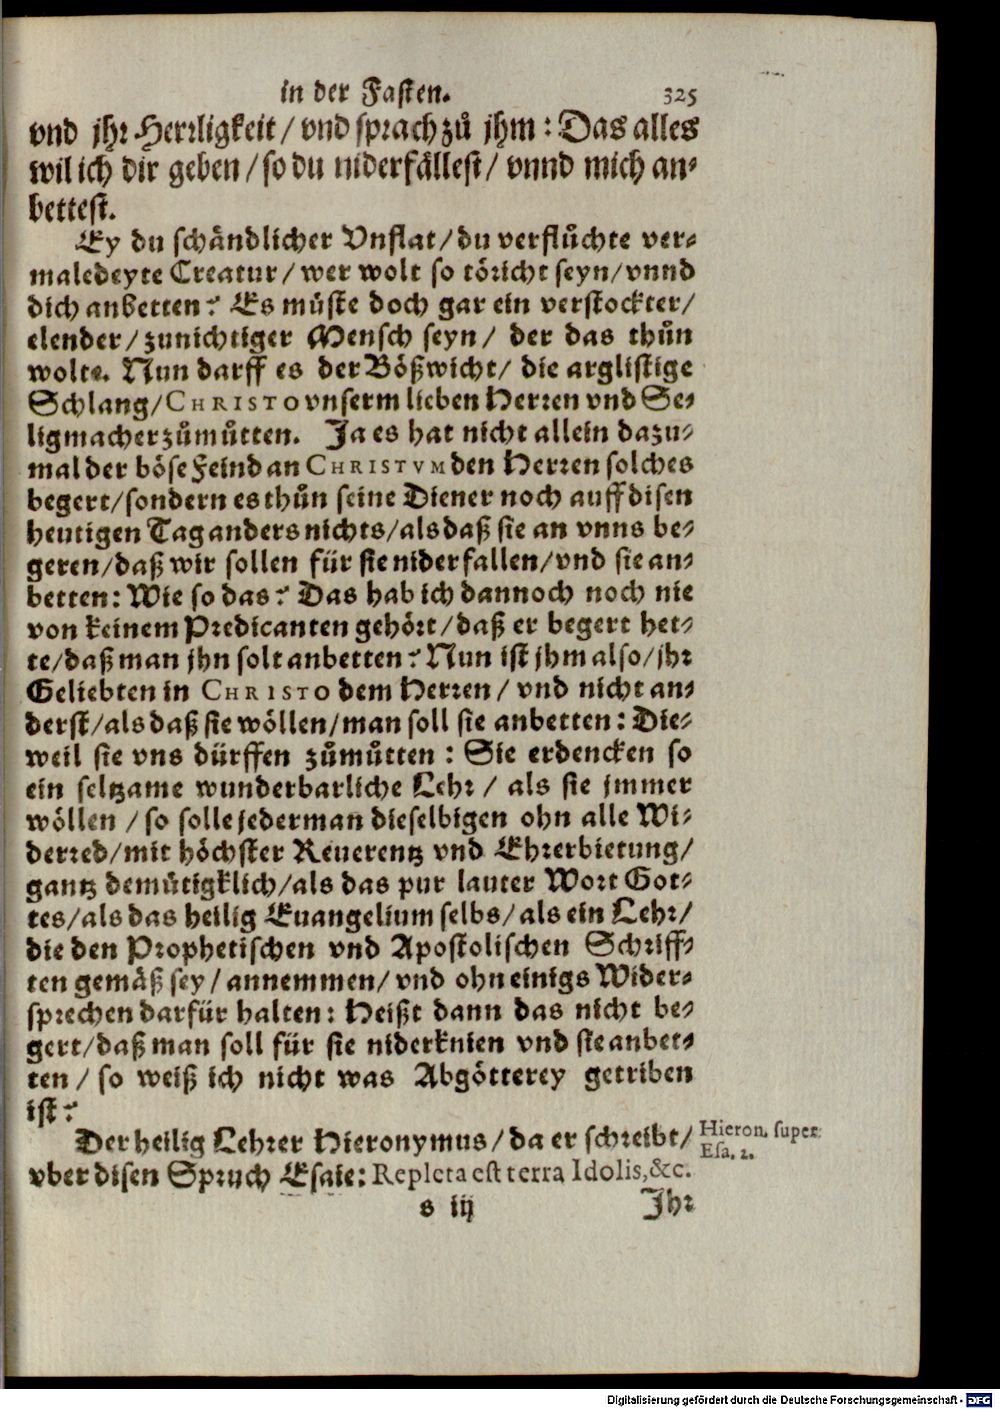 in der Fasten. 325
vnd jhr Herrligkeit/ vnd sprach zů jhm: Das alles
wil ich dir geben/ so du niderfällest/ vnnd mich an-
bettest.
Ey du schändlicher Vnflat/ du verflůchte ver-
maledeyte Creatur/ wer wolt so töricht seyn/ vnnd
dich anbetten? Es můste doch gar ein verstockter/
elender/ zunichtiger Mensch seyn/ der das thůn
wolte. Nun darff es der Bößwicht/ die arglistige
Schlang/ CHRISTO vnserm lieben Herren vnd Se-
ligmacher zůmůtten. Ja es hat nicht allein dazu-
mal der böse Feind an CHRISTVM den Herren solches
begert/ sondern es thůn seine Diener noch auff disen
heutigen Tag anders nichts/ als daß sie an vnns be-
geren/ daß wir sollen für sie niderfallen/ vnd sie an-
betten: Wie so das? Das hab ich dannoch noch nie
von keinem Predicanten gehört/ daß er begert het-
te/ daß man jhn solt anbetten? Nun ist jhm also/ jhr
Geliebten in CHRISTO dem Herren/ vnd nicht an-
derst/ als daß sie wöllen/ man soll sie anbetten: Die-
weil sie vns dürffen zůmůtten: Sie erdencken so
ein seltzame wunderbarliche Lehr/ als sie jmmer
wöllen/ so solle jederman dieselbigen ohn alle Wi-
derred/ mit höchster Reuerentz vnd Ehrerbietung/
gantz demütigklich/ als das pur lauter Wort Got-
tes/ als das heilig Euangelium selbs/ als ein Lehr/
die den Prophetischen vnd Apostolischen Schriff-
ten gemäß sey/ annemmen/ vnd ohn einigs Wider-
sprechen darfür halten: Heißt dann das nicht be-
gert/ daß man soll für sie niderknien vnd sie anbet-
ten/ so weiß ich nicht was Abgötterey getriben
ist?
Der heilig Lehrer Hieronymus/ da er schreibt/
vber disen Spruch Esaie: Repleta est terra Idolis, &c.
Hieron. super
Esa. 2.
s iij Jhr
Digitalisierung gefördert durch die Deutsche Forschungsgemeinschaft - DFG